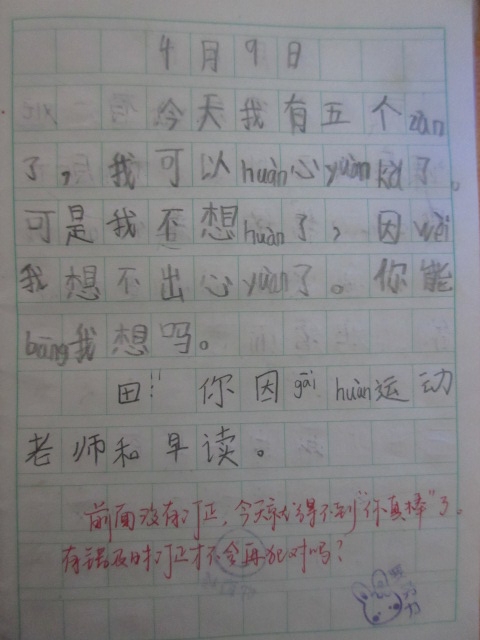 4月9日
今天我有五个zàn
了，我可以huàn心yuàn了。
可是我不想huàn了，因wèi
我想不出心yuàn了。你能
bāng我想吗。
田：你因gāi huàn运动
老师和早读。
前面没有订正，今天就得不到“你真棒”了。
有错及时订正才不会再犯对吗？